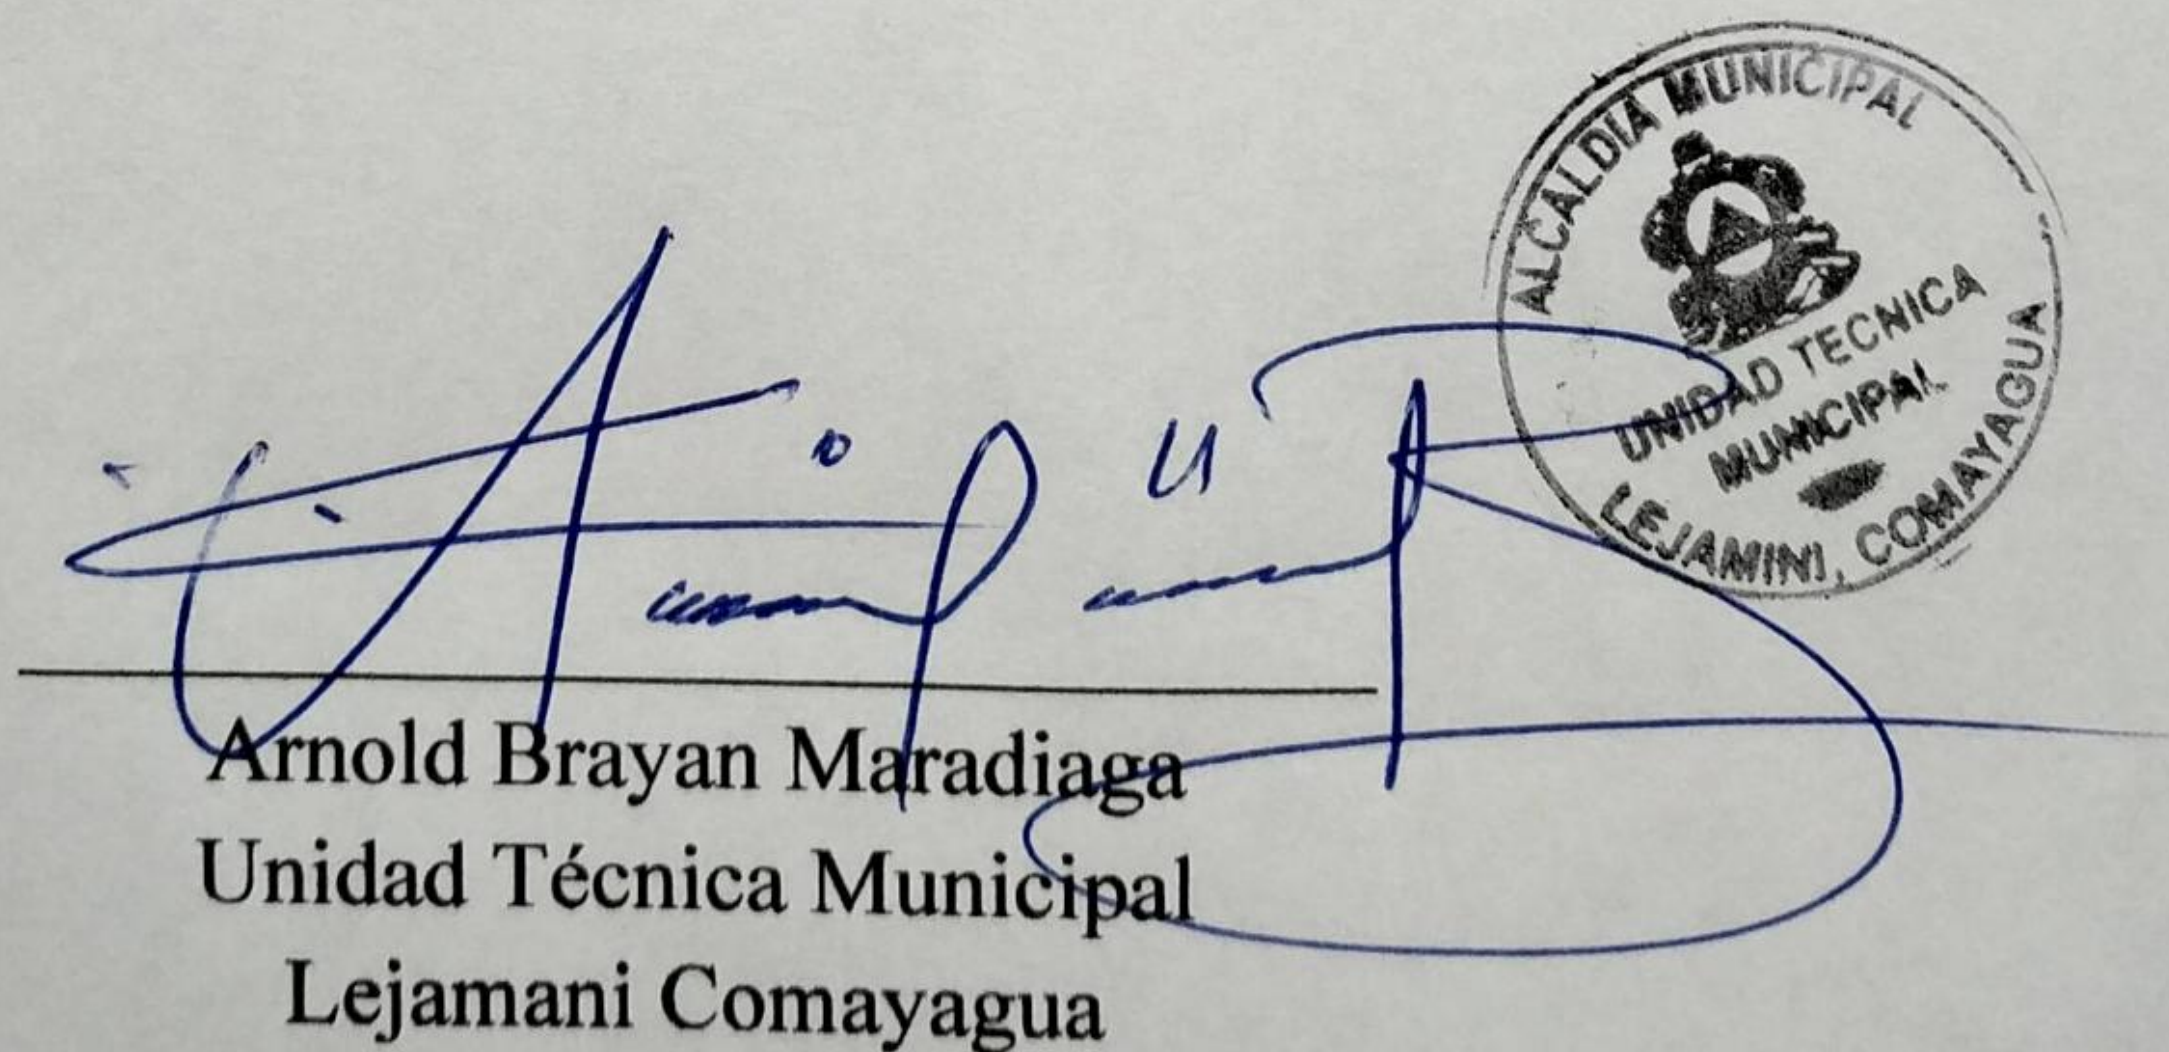 ALCALDIA MUNICIPAL
UNIDAD TECNICA
MUNICIPAL
LEJAMINI, COMAYAGUA
Arnold Brayan Maradiaga
Unidad Técnica Municipal
Lejamani Comayagua